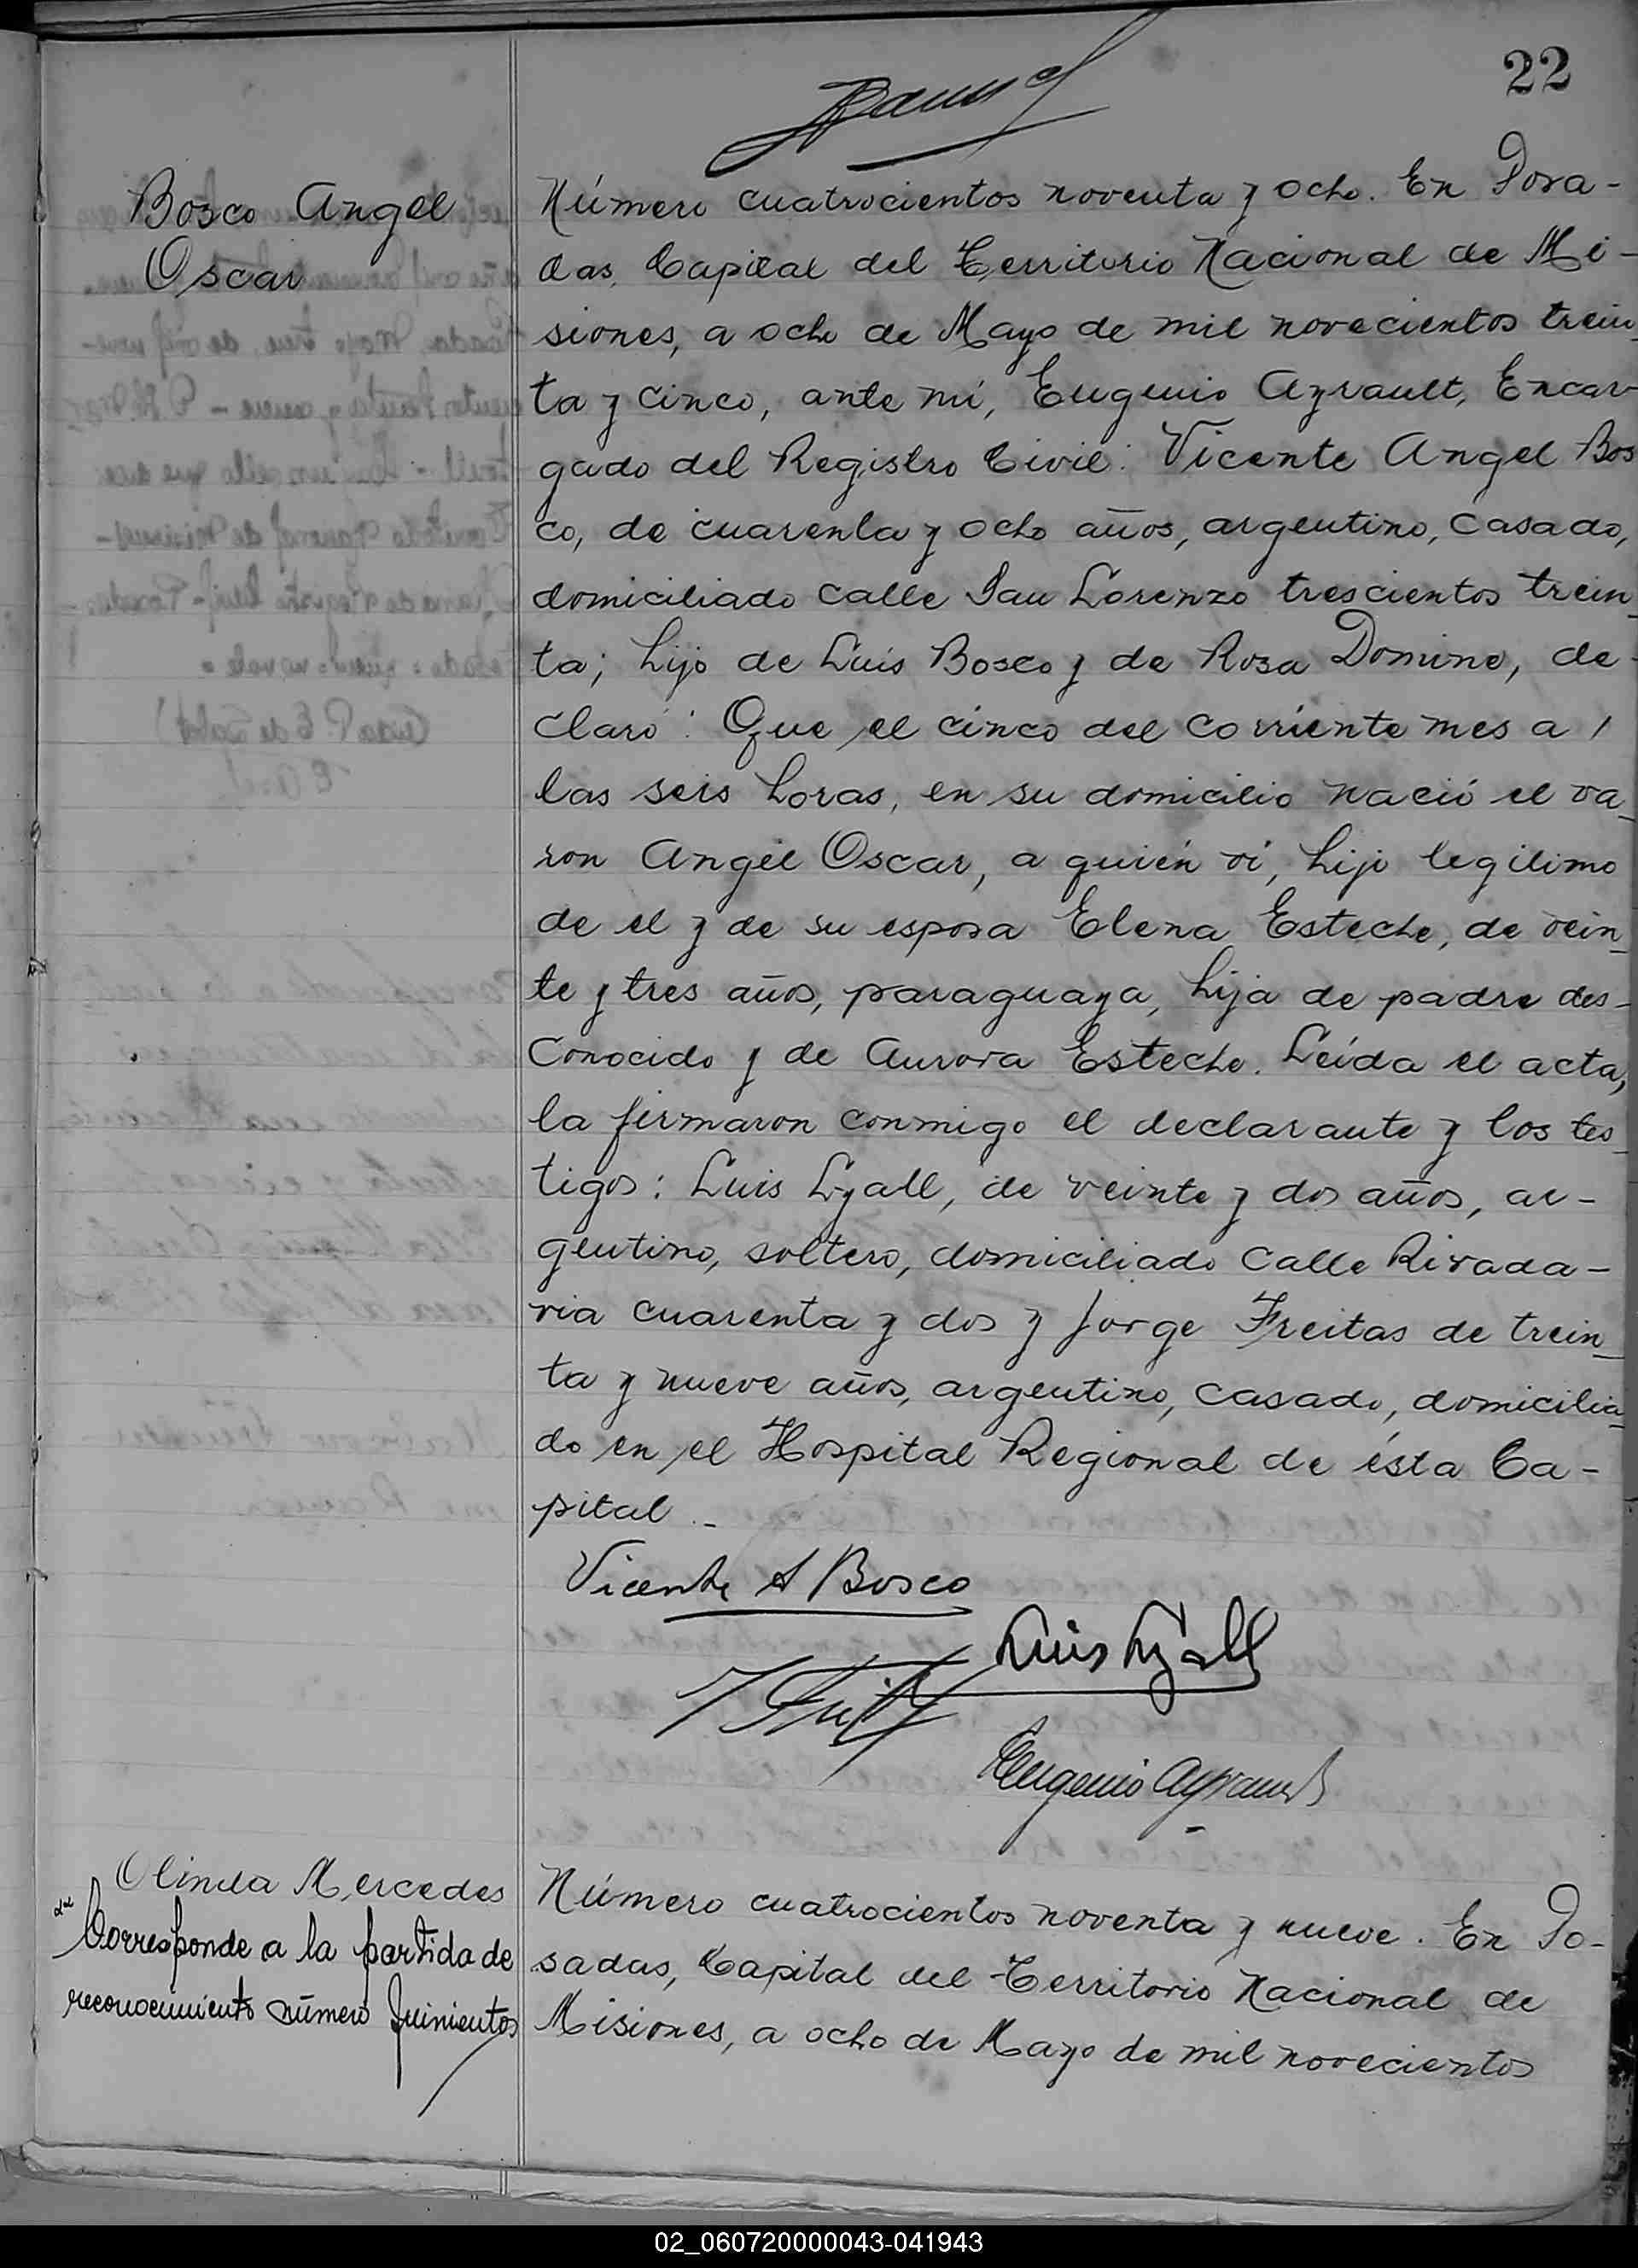 22
Bosco Angel
Oscar
Número cuatrocientos noventa y ocho. En Posa-
das, Capital del Territorio Nacional de Mi-
siones, a ocho de Mayo de mil novecientos trein_
ta y cinco, ante mí, Eugenio Ayrault, Encar
gado del Registro Civil: Vicente Angel Bos
co, de cuarenta y ocho años, argentino, casado,
domiciliado calle San Lorenzo trescientos trein_
ta; hijo de Luis Bosco y de Rosa Domine, de-
claró: Que el cinco del corriente mes a /
las seis horas, en su domicilio nació el va_
ron Angel Oscar, a quién vi, hijo legitimo
de el y de su esposa Elena Esteche, de vein_
te y tres años, paraguaya, hija de padre des-
conocido y de Aurora Esteche. Leída el acta,
la firmaron conmigo el declarante y los tes_
tigos: Luis Lyall, de veinte y dos años, ar-
gentino, soltero, domiciliado calle Rivada-
via cuarenta y dos y Jorge Freitas de trein_
ta y nueve años, argentino, casado, domicilia_
do en el Hospital Regional de ésta Ca-
pital.-
Vicente A Bosco
Luis Lyall
Eugenio Ayrault
Olinda Mercedes
Corresponde a la partida de
reconocimiento número quinientos
Número cuatrocientos noventa y nueve. En Po-
sadas, Capital del Territorio Nacional de
Misiones, a ocho de Mayo de mil novecientos
02_060720000043-041943